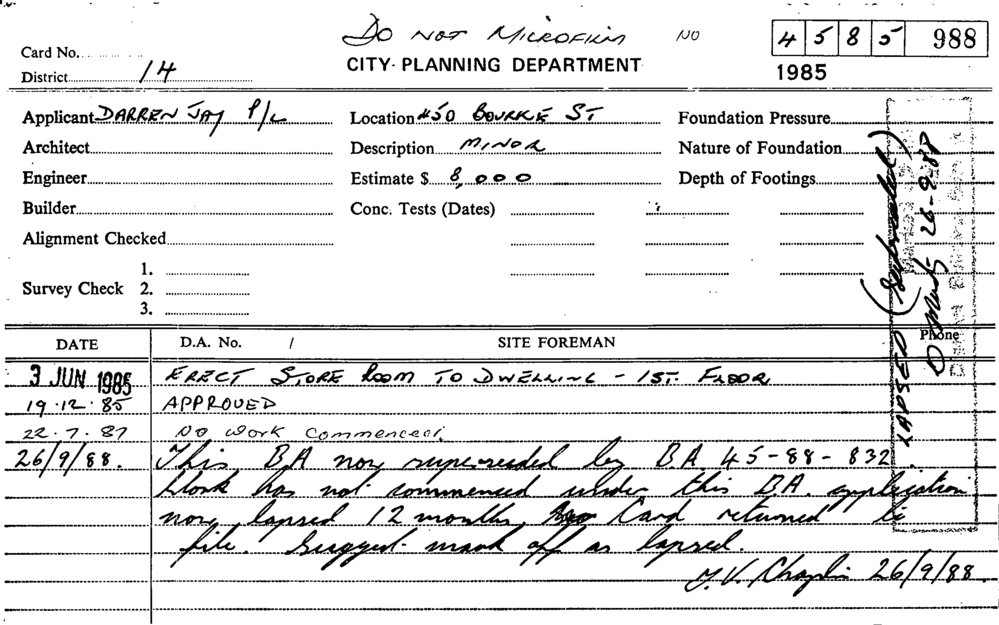 DO NOT MICROFILM NO
4 5 8 5 988
Card No.
CITY PLANNING DEPARTMENT
1985
District 14
Applicant DARREN JAY P/L Location 450 BOURKE ST Foundation Pressure
Architect Description MINOR Nature of Foundation
Engineer Estimate $ 8,000 Depth of Footings
Builder Conc. Tests (Dates)
Alignment Checked
1.
Survey Check 2.
3.
LAPSED (Superseded)
26-9-88
DATE D.A. No. / SITE FOREMAN Phone
3 JUN 1985 ERECT STORE ROOM TO DWELLING - 1ST. FLOOR
19.12.85 APPROVED
22.7.87 NO WORK COMMENCED.
26/9/88. This BA now superseeded by BA 45-88-832.
Work has not commenced under this B.A. application
now lapsed 12 months, Card returned to
file. Suggest mark off as lapsed.
T.V. Chaplin 26/9/88.